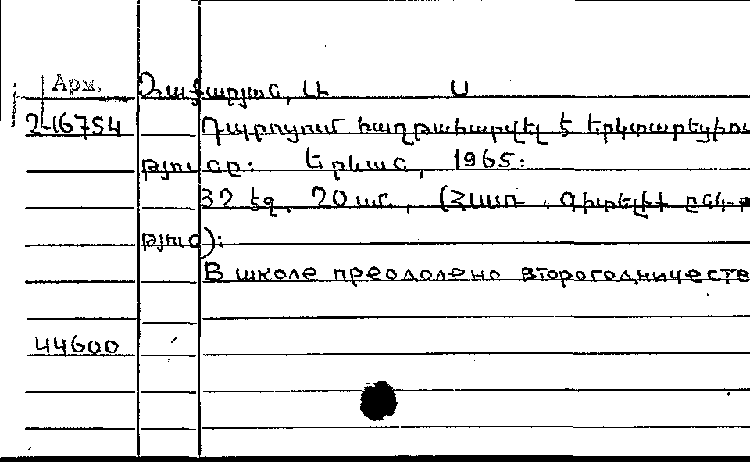 Арм.
Զաքարյան, Ա. Ս
2-16754 Դպրոցում հաղթահարվել է երկտարեցիու
թյունը: Երևան, 1965:
32 էջ. 20 սմ., (ՀՍՍՌ. Գիտելիք ընկ-ր
թյուն):
В школе преодолено второгодничеств
44600